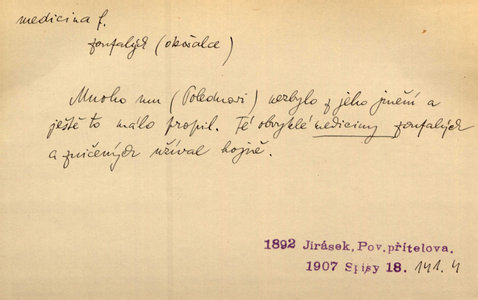 medicina f.
zoufalých (okřála)
Mnoho mu (Polednovi) nezbylo z jeho jmění a
ještě to málo propil. Té obvyklé medicíny zoufalých
a zničených užíval hojně.
1892 Jirásek, Pov. přítelova.
1907 Spisy 18. 141. 4